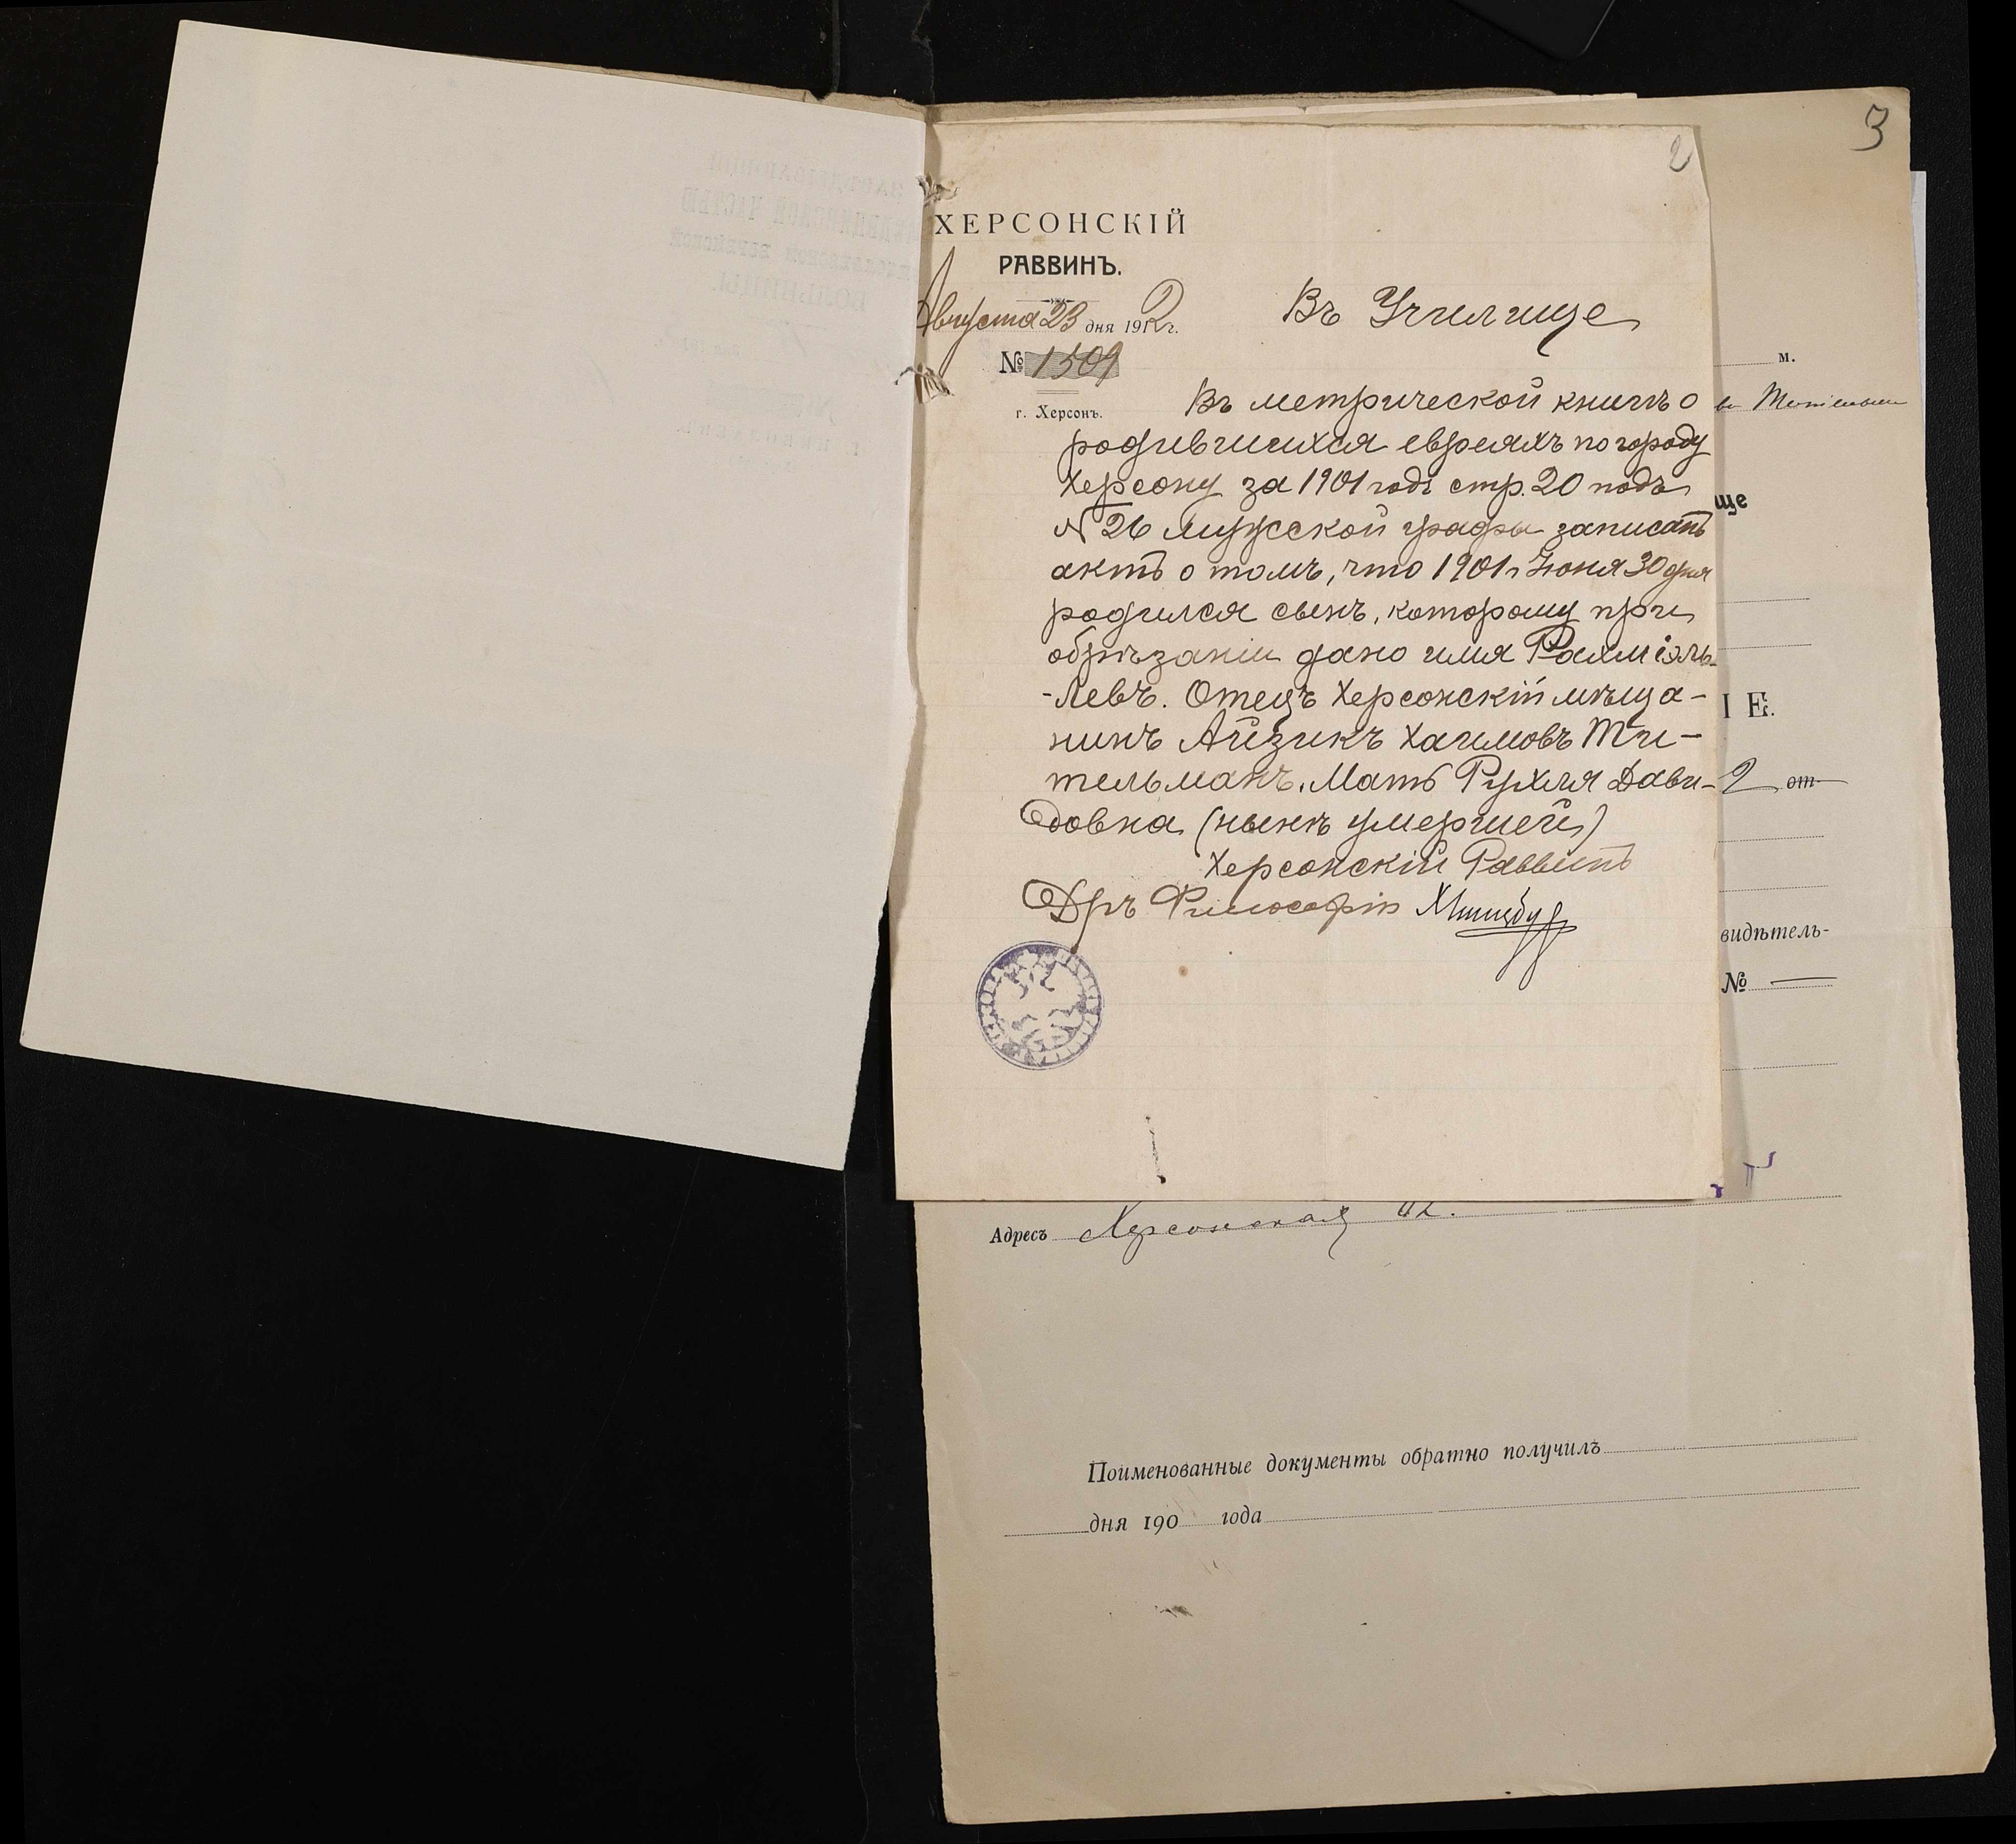 3
2
ХЕРСОНСКІЙ
РАВВИНЪ.
Августа 23 дня 1912 г.
№ 1509
г. Херсонъ.
Въ Училище
Въ метрической книгѣ о
родившихся евреяхъ по городу
Херсону за 1901 годъ стр. 20 подъ
№ 26 мужской графы записанъ
актъ о томъ, что 1901 г Іюня 30 дня
родился сынъ, которому при
обрѣзаніи дано имя Рахміэль-
-Левъ. Отецъ Херсонскій мѣща-
нинъ Айзикъ Хаимовъ Ти-
тельманъ. Мать Рухля Дави-
довна (нынѣ умершей)
Херсонскій Раввинъ
Дръ Философіи
м.
ще
І Е.
2 от
видѣтель-
№
Адресъ Херсонская
Поименованные документы обратно получилъ
дня 190 года